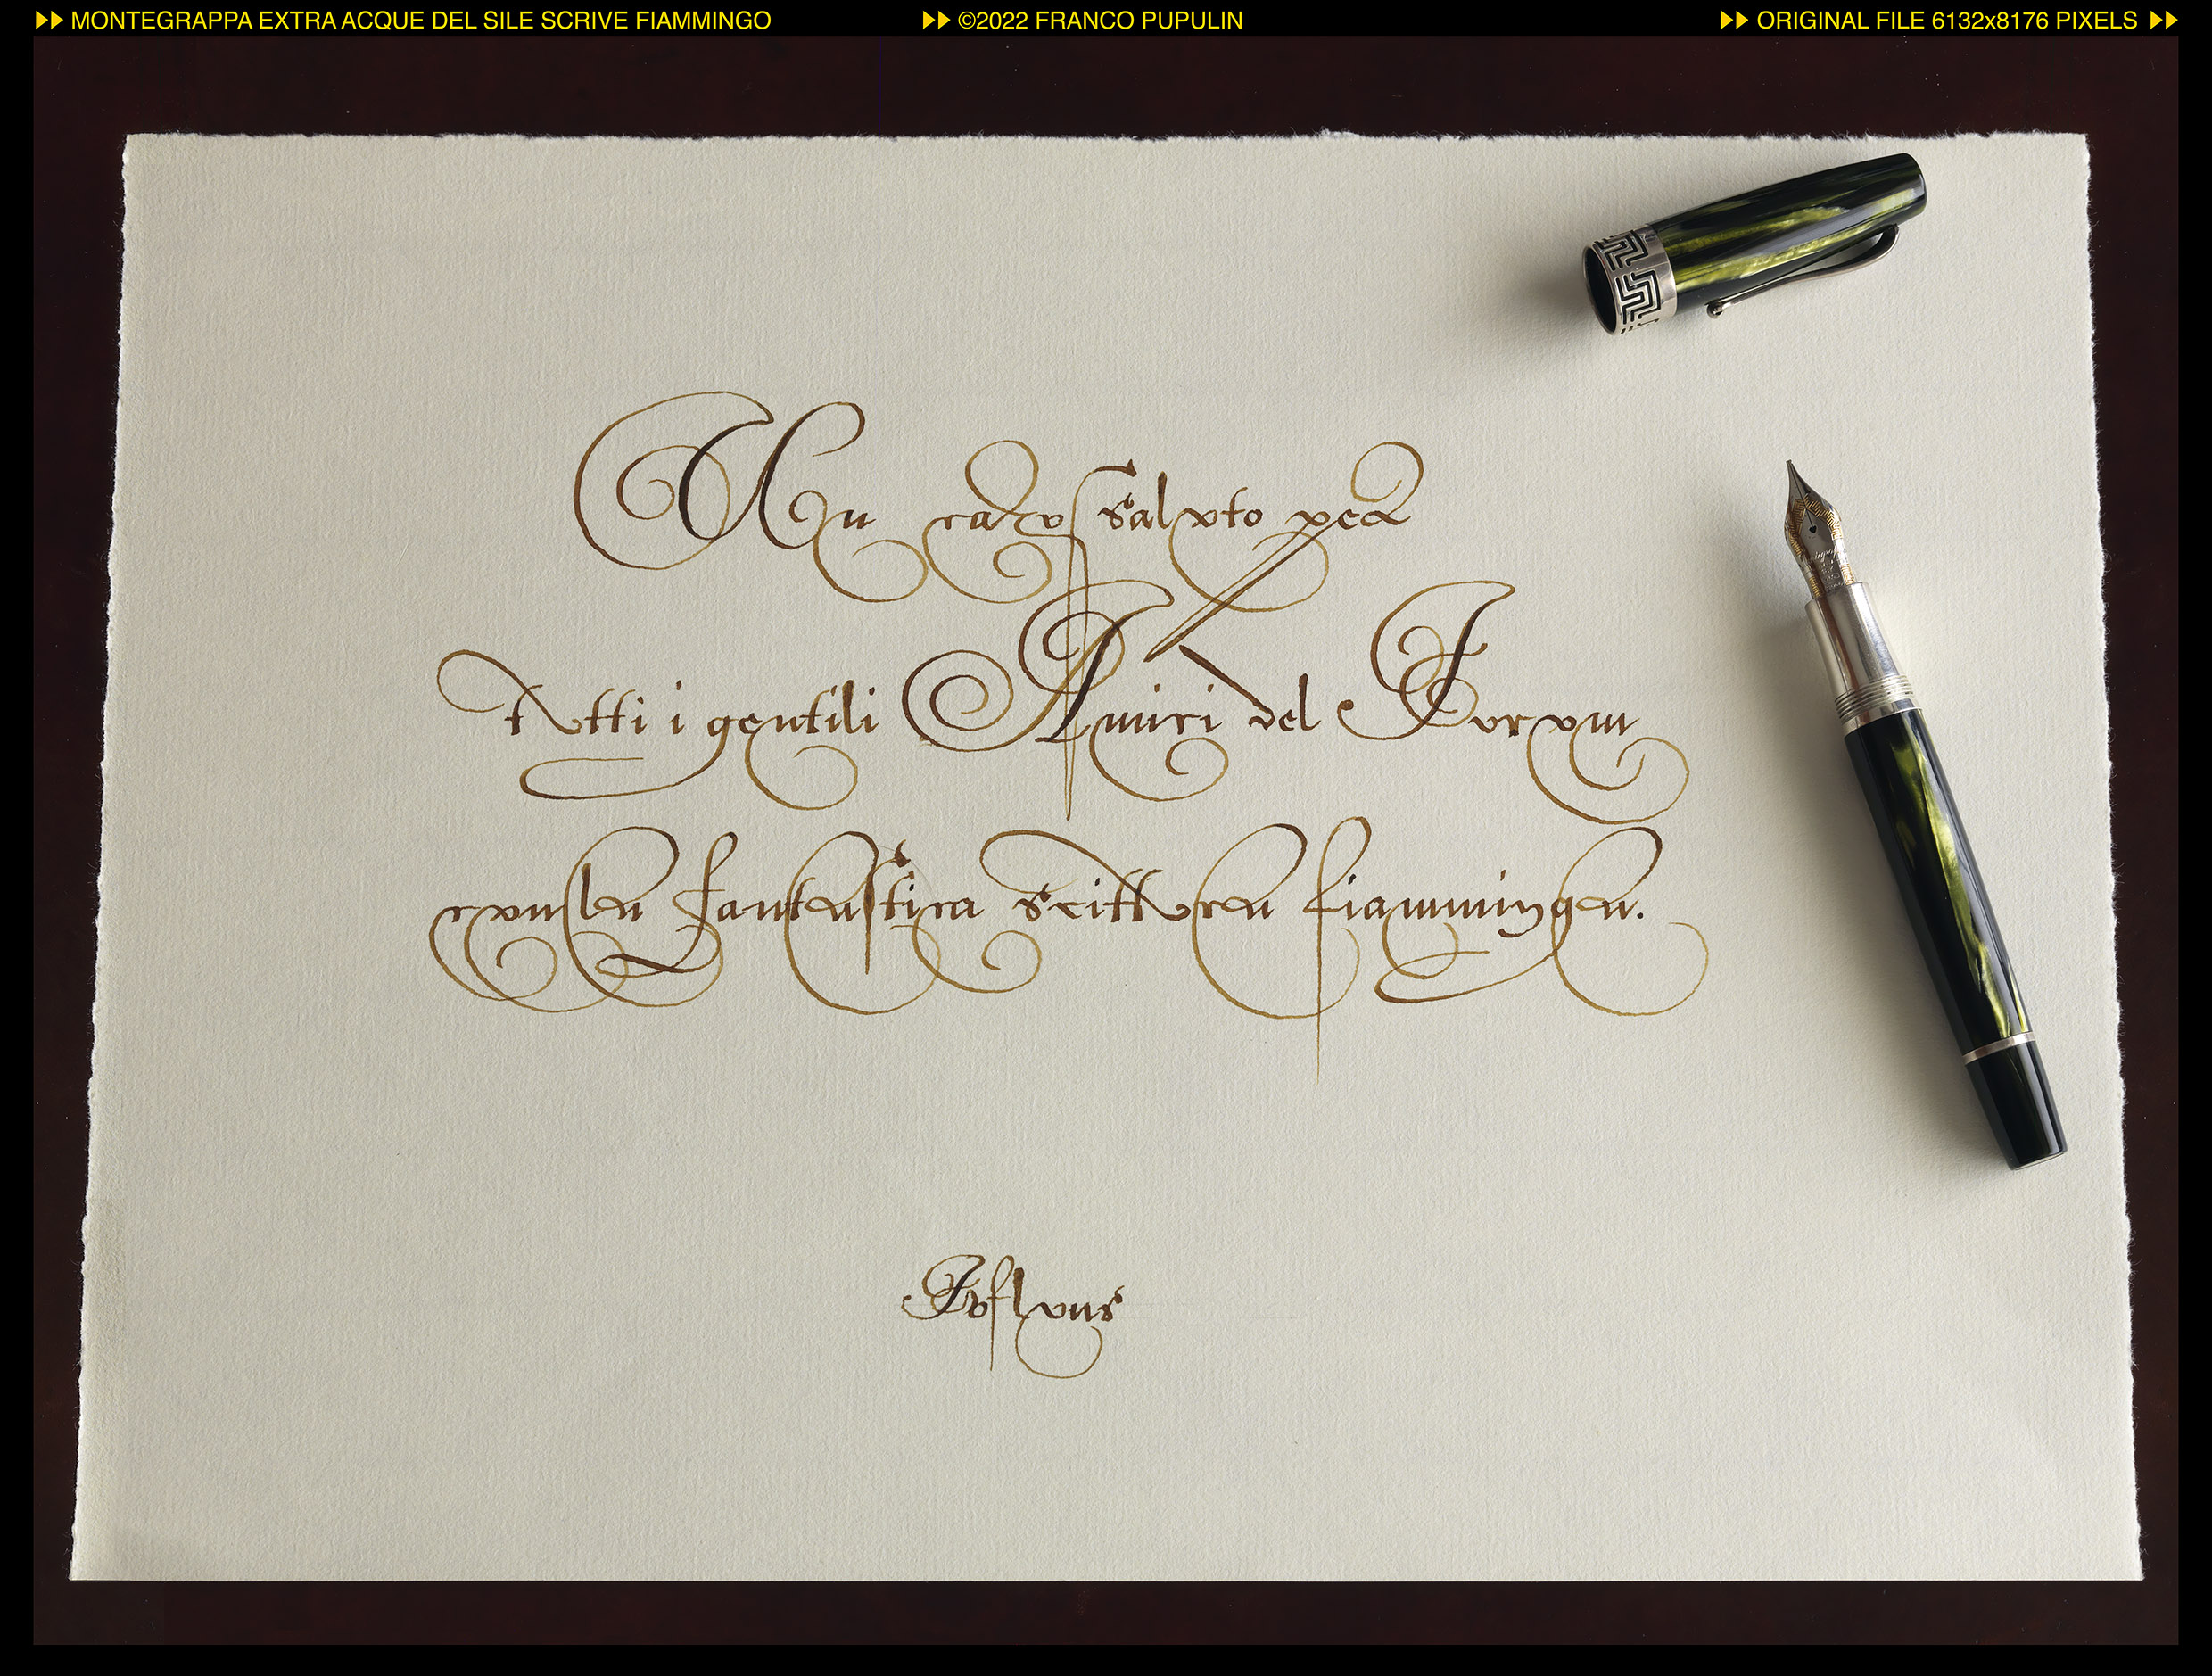 MONTEGRAPPA EXTRA ACQUE DEL SILE SCRIVE FIAMMINGO
©2022 FRANCO PUPULIN
ORIGINAL FILE 6132x8176 PIXELS
Un caro saluto per
tutti i gentili Amici del Forum
con la fantastica scittura fiamminga.